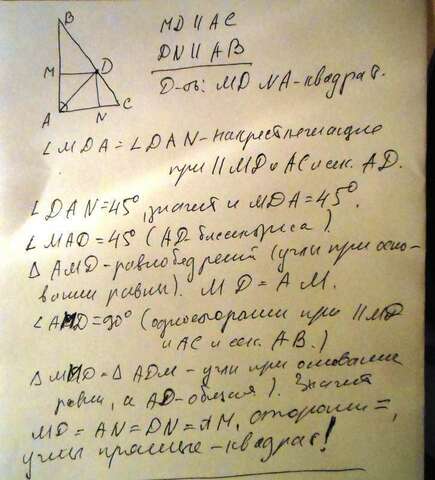 B
MD || AC
DN || AB
M D
Д-ть: MD NA - квадрат.
A N C
∠MDA = ∠DAN - накрест лежащие
при || MD и AC и сек. AD.
∠DAN = 45°, значит и MDA = 45°.
∠MAD = 45° (AD - биссектриса).
△ AMD - равнобедрений (углы при осно-
вании равны). MD = AM.
∠AMD = 90° (односторонни при || MD
и AC и сек. AB.)
△ = △ ADM - угли при основание
равни, и AD - общая). Значит
MD = AN = DN = AM, сторони =,
углы прямые - квадрат!